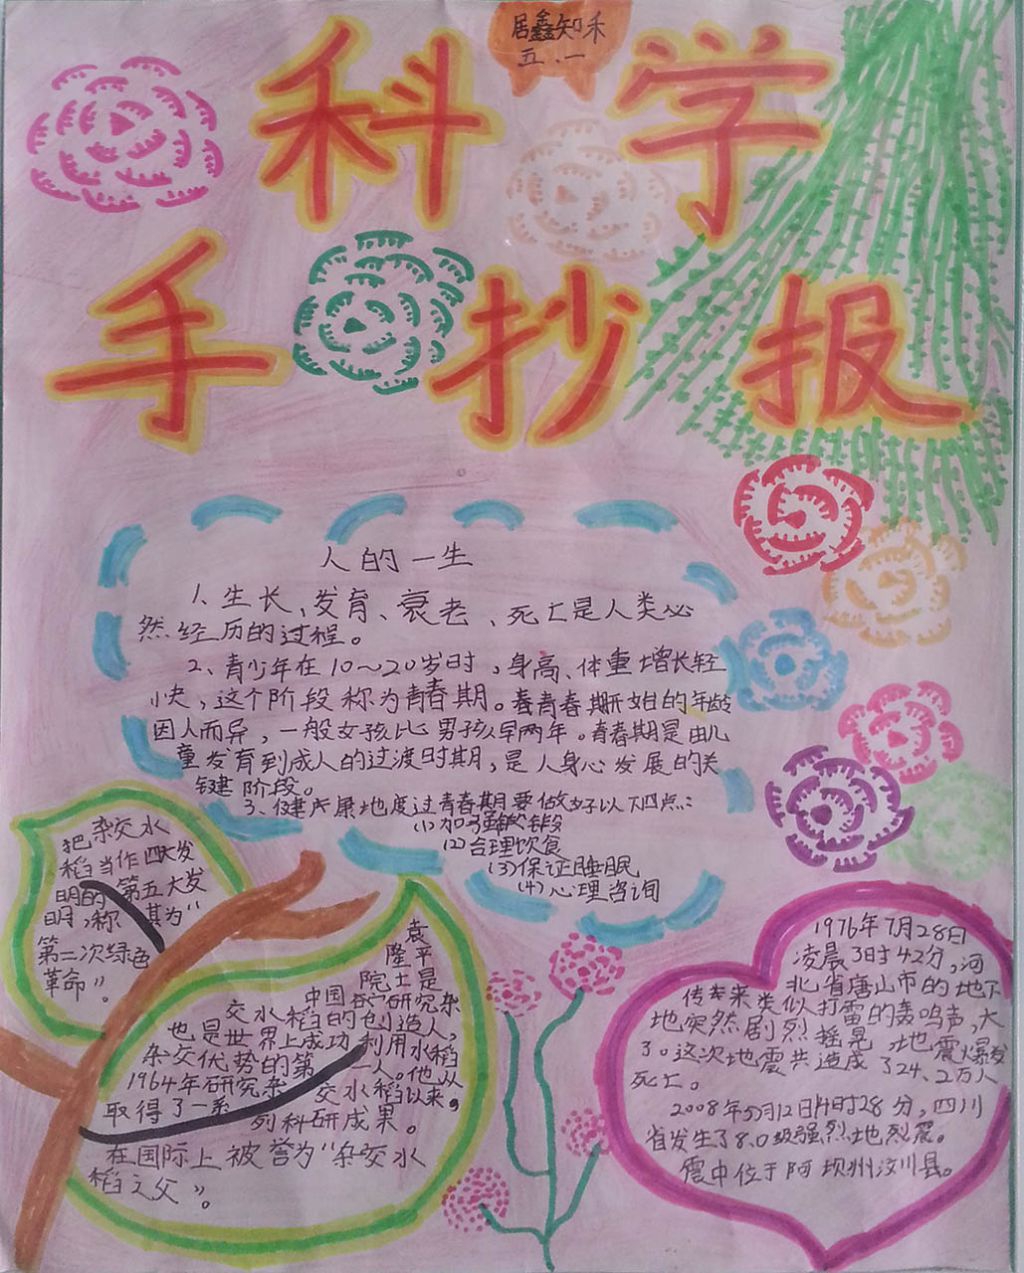 居鑫知禾
五.一
科学
手抄报
人的一生
1、生长、发育、衰老、死亡是人类必
然经历的过程。
2、青少年在10～20岁时,身高、体重增长轻
快,这个阶段称为青春期。春青春期开始的年龄
因人而异,一般女孩比男孩早两年。青春期是由儿
童发育到成人的过渡时期,是人身心发展的关
键阶段。
3、健康地度过青春期要做好以下四点:
(1)加强锻段
(2)合理饮食
(3)保证睡眠
(4)心理咨询
把杂交水
稻当作四大发
明的第五大发
明,称其为“
第二次绿色
革命”。
袁
隆平
院士是
中国研究杂
交水稻的创造人,
也是世界上成功利用水稻
杂交优势的第一人。他从
1964年研究杂交水稻以来,
取得了一系列科研成果。
在国际上被誉为“杂交水
稻之父”。
1976年7月28日
凌晨3时42分,河
北省唐山市的地下
传来类似打雷的轰鸣声,大
地突然剧烈摇晃,地震爆发
了。这次地震共造成了24、2万人
死亡。
2008年5月12日14时28分,四川
省发生了8.0级强烈地烈震。
震中位于阿坝州汶川县。